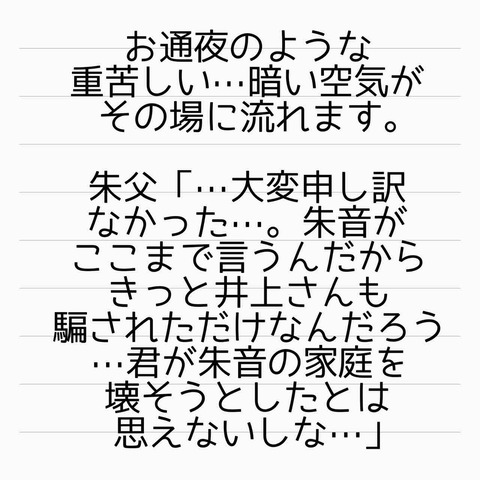 お通夜のような
重苦しい…暗い空気が
その場に流れます。
朱父「…大変申し訳
なかった…。朱音が
ここまで言うんだから
きっと井上さんも
騙されただけなんだろう
…君が朱音の家庭を
壊そうとしたとは
思えないしな…」